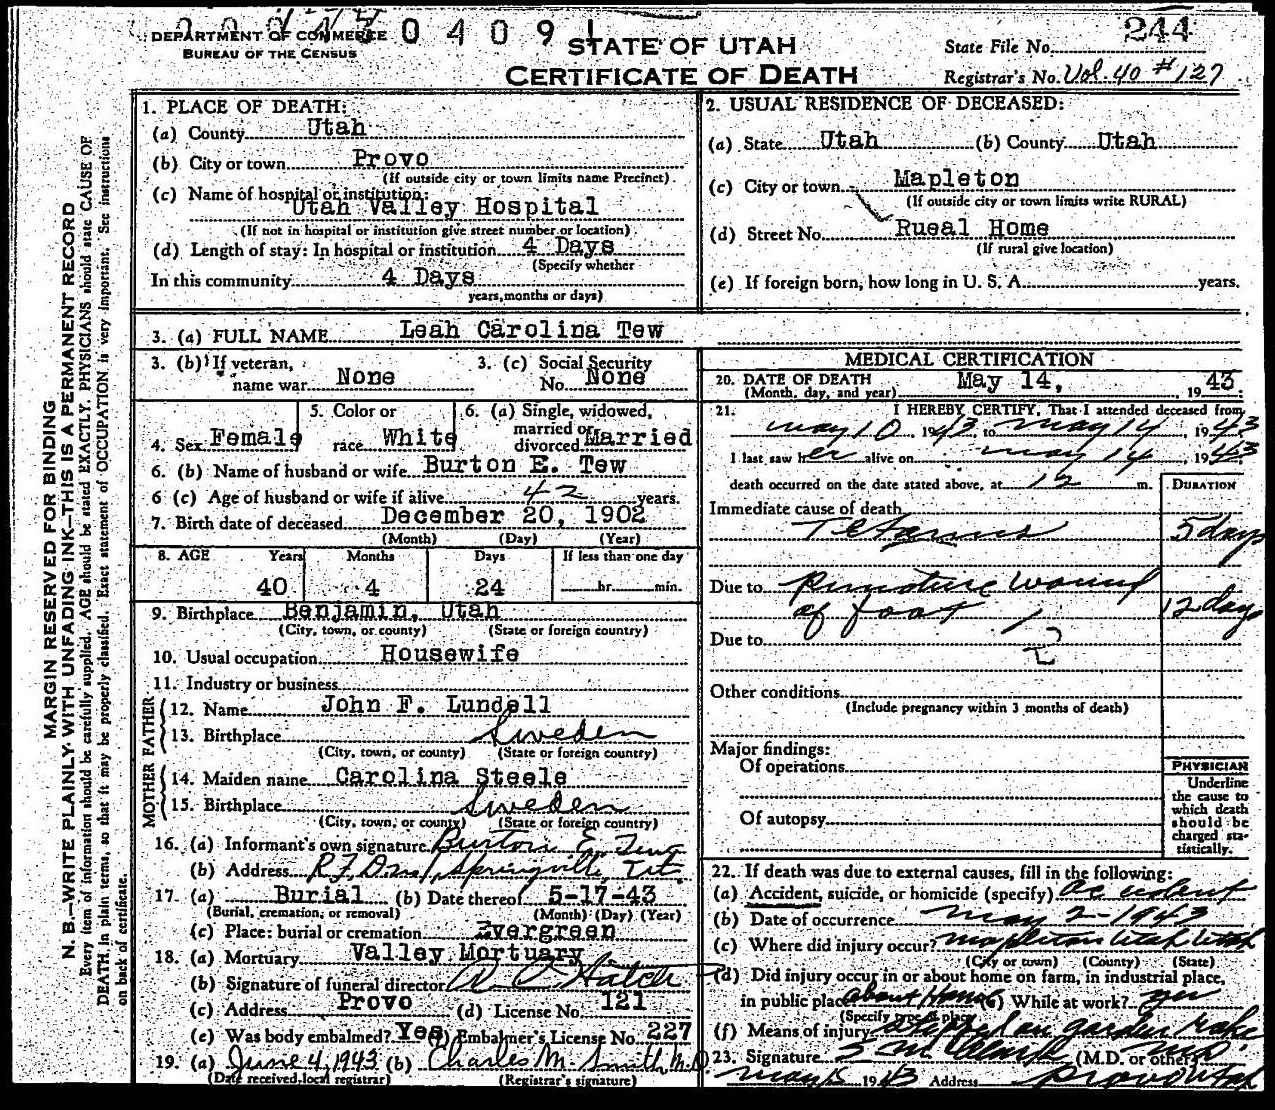 DEPARTMENT OF COMMERCE
BUREAU OF THE CENSUS
0 4 0 9 1
STATE OF UTAH
CERTIFICATE OF DEATH
244
State File No.
Registrar's No. Vol. 40 # 127
MARGIN RESERVED FOR BINDING
N. B.—WRITE PLAINLY WITH UNFADING INK—THIS IS A PERMANENT RECORD
Every item of information should be carefully supplied. AGE should be stated EXACTLY. PHYSICIANS should state CAUSE OF
DEATH in plain terms, so that it may be properly classified. Exact statement of OCCUPATION is very important. See instructions
on back of certificate.
1. PLACE OF DEATH:
(a) County Utah
(b) City or town Provo
(If outside city or town limits name Precinct)
(c) Name of hospital or institution:
Utah Valley Hospital
(If not in hospital or institution give street number or location)
(d) Length of stay: In hospital or institution 4 Days
(Specify whether
In this community 4 Days
years, months or days)
2. USUAL RESIDENCE OF DECEASED:
(a) State Utah (b) County Utah
(c) City or town Mapleton
(If outside city or town limits write RURAL)
(d) Street No. Rueal Home
(If rural give location)
(e) If foreign born, how long in U. S. A. years.
3. (a) FULL NAME Leah Carolina Tew
3. (b) If veteran, name war None
3. (c) Social Security No. None
4. Sex Female
5. Color or race White
6. (a) Single, widowed, married or divorced Married
6. (b) Name of husband or wife Burton E. Tew
6 (c) Age of husband or wife if alive 42 years.
7. Birth date of deceased December 20, 1902
(Month) (Day) (Year)
8. AGE Years Months Days If less than one day
40 4 24 hr. min.
9. Birthplace Benjamin, Utah
(City, town, or county) (State or foreign country)
10. Usual occupation Housewife
11. Industry or business
FATHER
12. Name John F. Lundell
13. Birthplace Sweden
(City, town, or county) (State or foreign country)
MOTHER
14. Maiden name Carolina Steele
15. Birthplace Sweden
(City, town, or county) (State or foreign country)
16. (a) Informant's own signature Burton E. Tew
(b) Address Springville, Ut.
17. (a) Burial (b) Date thereof 5-17-43
(Burial, cremation, or removal) (Month) (Day) (Year)
(c) Place: burial or cremation Evergreen
18. (a) Mortuary Valley Mortuary
(b) Signature of funeral director Hatch
(c) Address Provo (d) License No. 121
(e) Was body embalmed? Yes Embalmer's License No. 227
19. (a) June 4, 1943 (b) Charles M. Smith M.D.
(Date received local registrar) (Registrar's signature)
MEDICAL CERTIFICATION
20. DATE OF DEATH May 14, 19 43
(Month, day, and year)
21. I HEREBY CERTIFY, That I attended deceased from
May 10, 1943 to May 14, 1943
I last saw her alive on May 14, 1943
death occurred on the date stated above, at 12 m.
DURATION
Immediate cause of death
Tetanus 5 days
Due to puncture wound
of foot 12 days
Due to
Other conditions
(Include pregnancy within 3 months of death)
Major findings:
Of operations
Of autopsy
PHYSICIAN
Underline
the cause to
which death
should be
charged sta-
tistically.
22. If death was due to external causes, fill in the following:
(a) Accident, suicide, or homicide (specify) accident
(b) Date of occurrence May 2-1943
(c) Where did injury occur? Mapleton Utah Utah
(City or town) (County) (State)
(d) Did injury occur in or about home on farm, in industrial place,
in public place about Home While at work? yes
(Specify type of place)
(f) Means of injury stepped on garden rake
23. Signature (M.D. or other)
May 15 1943 Address Provo Utah